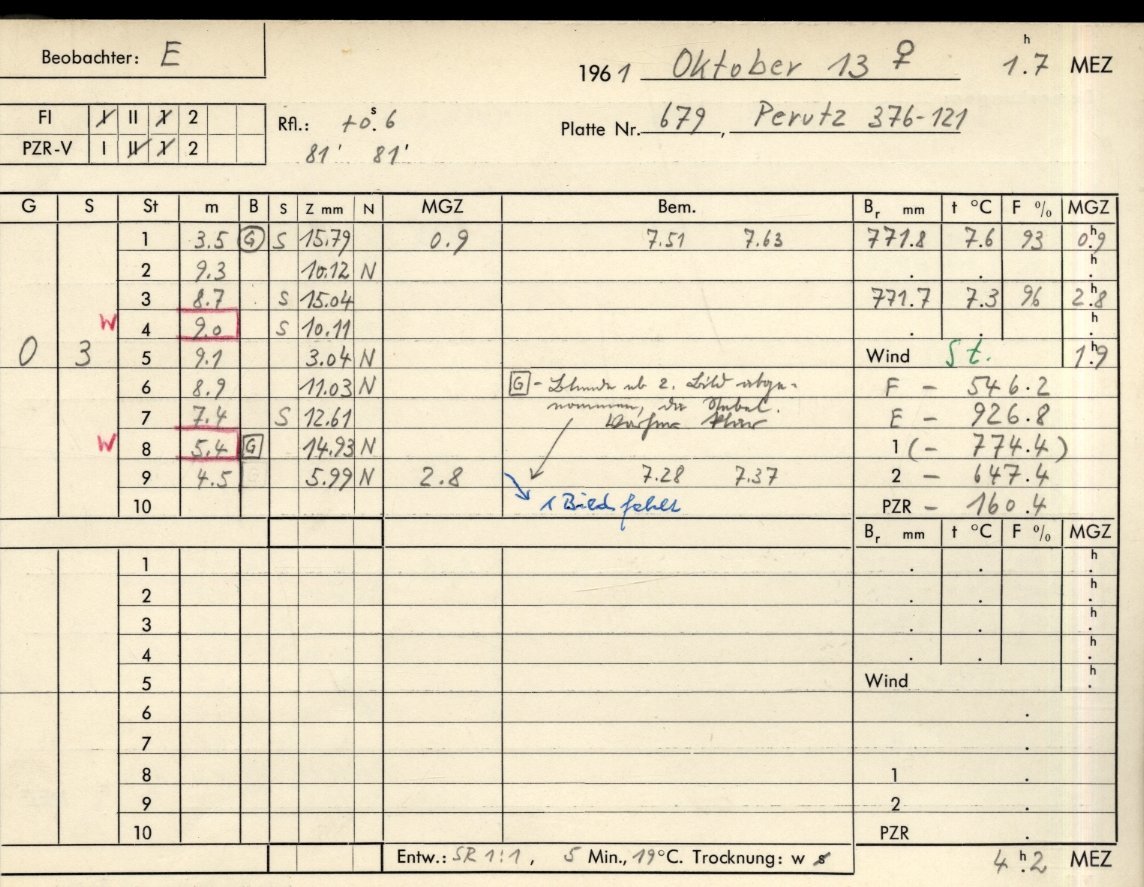 Beobachter: E
1961 Oktober 13 ♀ 1.ʰ7 MEZ
FI I II 1 2
PZR-V I II 1 2
Rfl.: +0.ˢ6
81' 81'
Platte Nr. 679, Perutz 376-121
G S St m B S Z mm N MGZ Bem. Bᵣ mm t °C F % MGZ
1 3.5 G S 15.79 0.9 7.51 7.63 771.8 7.6 93 0.ʰ9
2 9.3 10.12 N . . ʰ.
3 8.7 S 15.04 771.7 7.3 96 2.ʰ8
W 4 9.0 S 10.11 . . ʰ.
0 3 5 9.1 3.04 N Wind St. 1.ʰ9
6 8.9 11.03 N G - Blende ab 2. Bild abge- F - 546.2
7 7.4 S 12.61 nommen, da Nebel. E - 926.8
W 8 5.4 G 14.93 N 1 (- 774.4)
9 4.5 5.99 N 2.8 7.28 7.37 2 - 647.4
10 1 Bild fehlt PZR - 160.4
Bᵣ mm t °C F % MGZ
1 . . ʰ.
2 . . ʰ.
3 . . ʰ.
4 . . ʰ.
5 Wind ʰ.
6 .
7 .
8 1 .
9 2 .
10 PZR .
Entw.: SR 1:1, 5 Min., 19°C. Trocknung: w s 4.ʰ2 MEZ